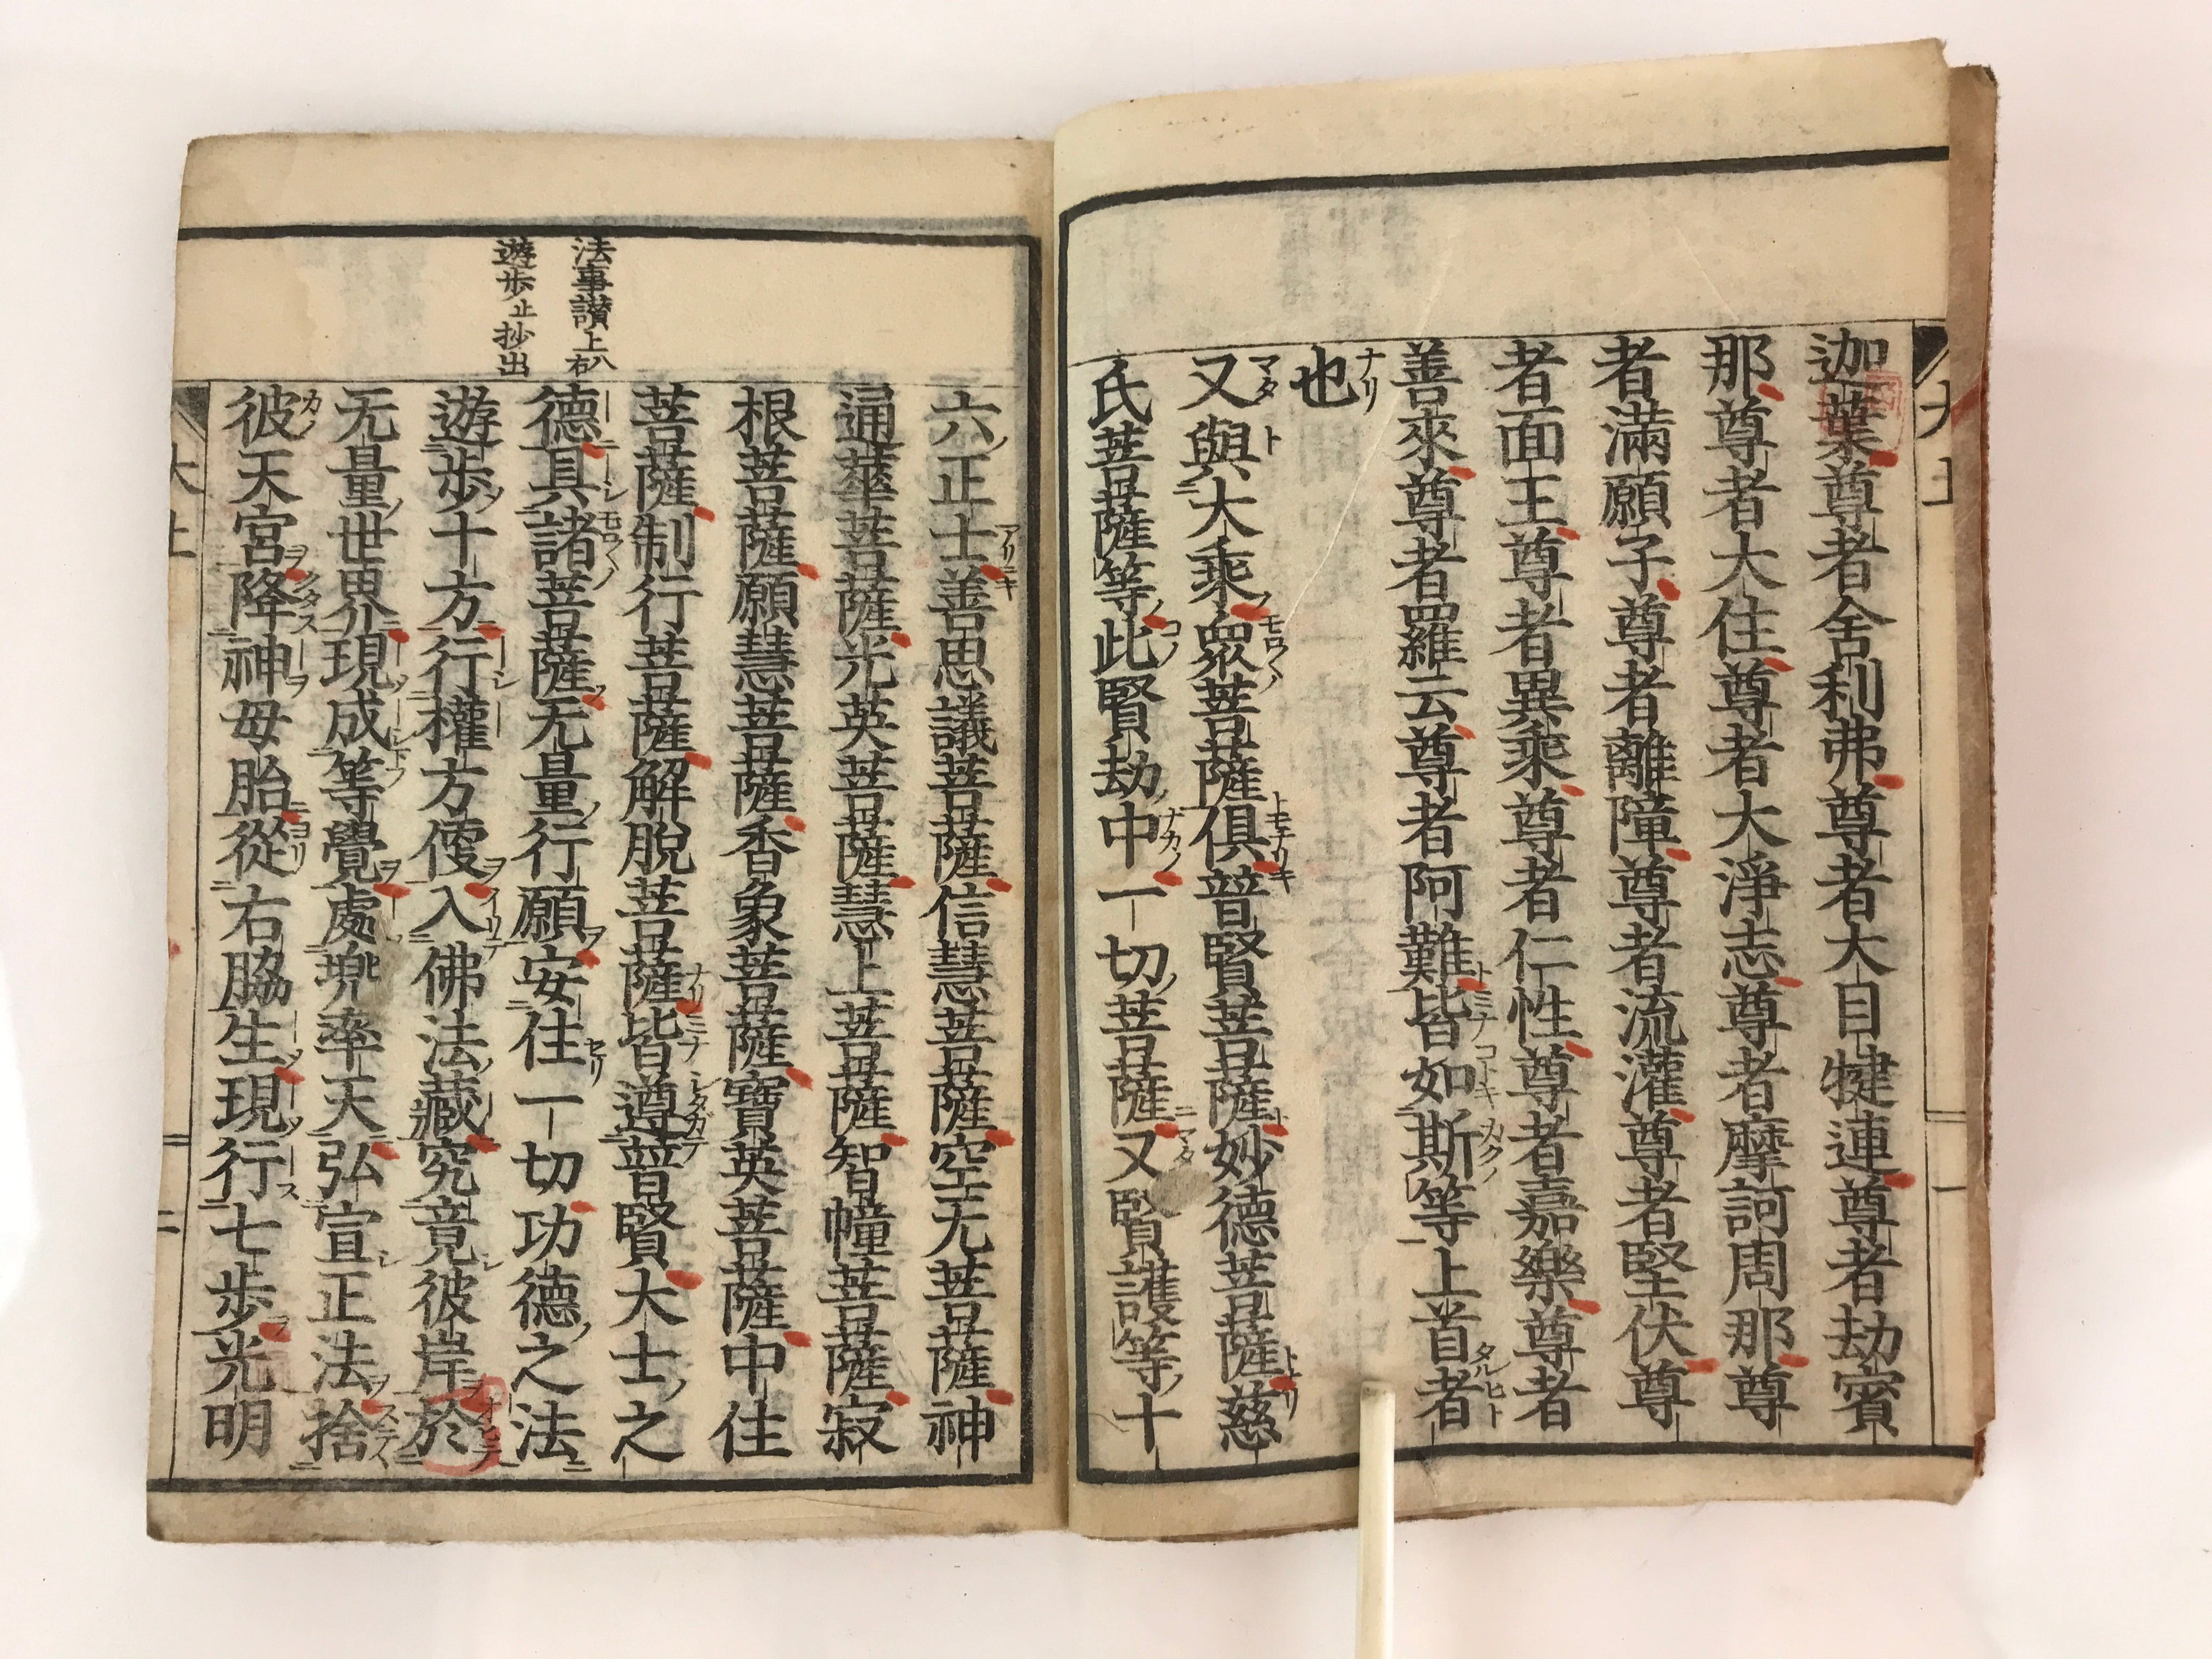 迦葉尊者舍利弗尊者大目犍連尊者劫賓
那尊者大住尊者大淨志尊者摩訶周那尊
者滿願子尊者離障尊者流灌尊者堅伏尊
者面王尊者異乘尊者仁性尊者嘉樂尊者
善來尊者羅云尊者阿難皆如斯等上首者
也
又與大乘衆菩薩俱普賢菩薩妙德菩薩慈
氏菩薩等此賢劫中一切菩薩又賢護等十
法事讃上八右
遊歩止抄出
六正士善思議菩薩信慧菩薩空无菩薩神
通華菩薩光英菩薩慧上菩薩智幢菩薩寂
根菩薩願慧菩薩香象菩薩寶英菩薩中住
菩薩制行菩薩解脫菩薩皆遵普賢大士之
德具諸菩薩无量行願安住一切功德之法
遊歩十方行權方便入佛法藏究竟彼岸於
无量世界現成等覺處兜率天弘宣正法捨
彼天宮降神母胎從右脇生現行七歩光明